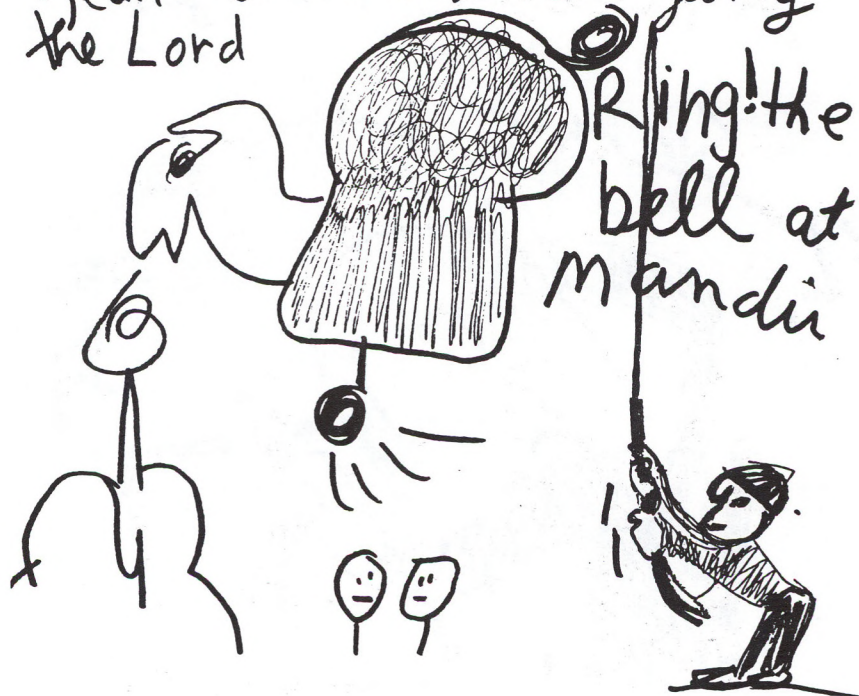 the Lord
Ring! the
bell at
Mandir